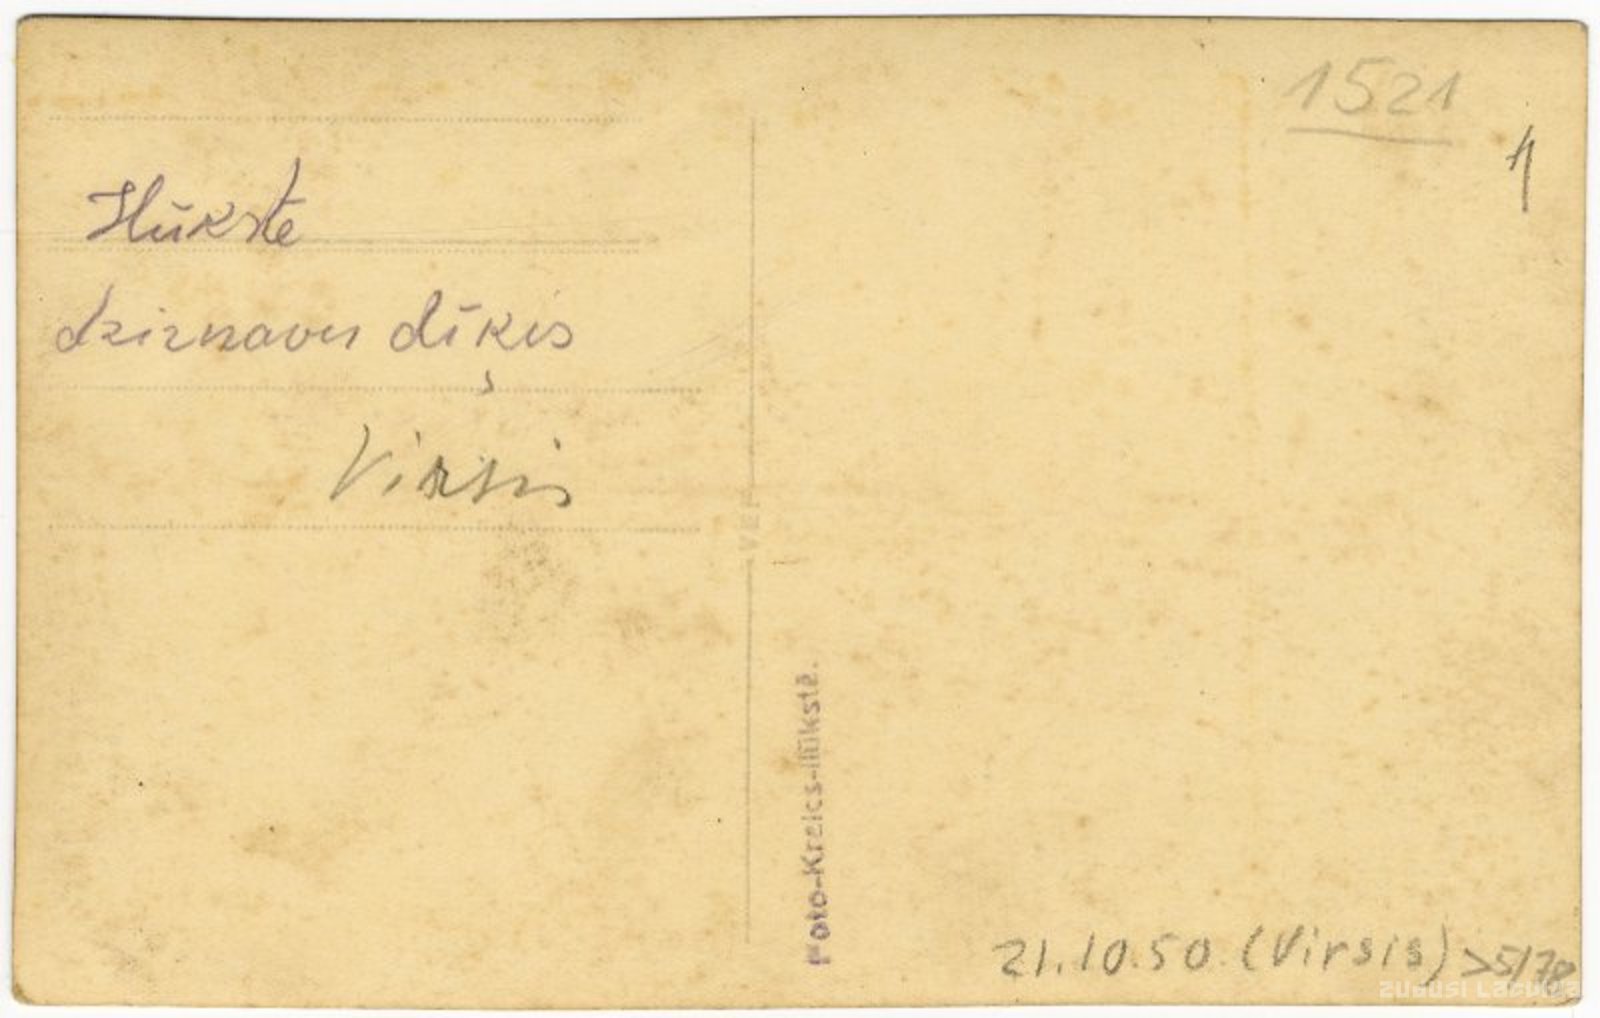 1521
1
Ilūkste
dzirnavu dīķis
Virsis
VEF
Foto-Kreics-Ilūkstē.
21.10.50. (Virsis) >5/78
zudusi Latvija